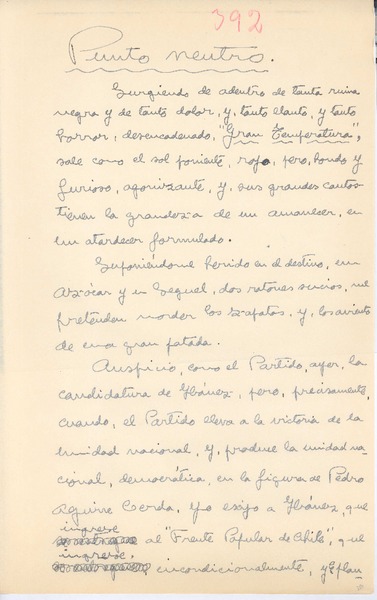 392
Punto neutro.
Surgiendo de adentro de tanta ruina
negra y de tanto dolor, y, tanto llanto, y tanto
horror, desencadenado, "Gran Temperatura",
sale como el sol poniente, rojo, pero, hondo y
furioso, agonizante, y, sus grandes cantos
tienen la grandeza de un amanecer, en
un atardecer formulado.
Suponiéndome herido en el destino, un
Azócar y un Seguel, dos ratones sucios, me
pretenden morder los zapatos, y, los aviento
de una gran patada.
Auspicio, como el Partido, ayer, la
candidatura de Ibáñez, pero, precisamente,
cuando, el Partido lleva a la victoria de la
unidad nacional, y, produce la unidad na-
cional, democrática, en la figura de Pedro
Aguirre Cerda, yo exijo a Ibáñez, que
ingrese
al "Frente Popular de Chile", que
ingrese
incondicionalmente, y, plan